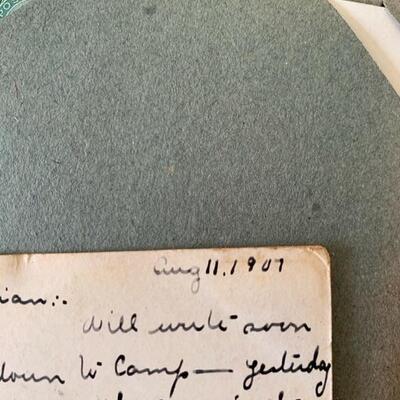 Aug 11, 1907
ian:-
Will write soon
down to Camp — yesterday